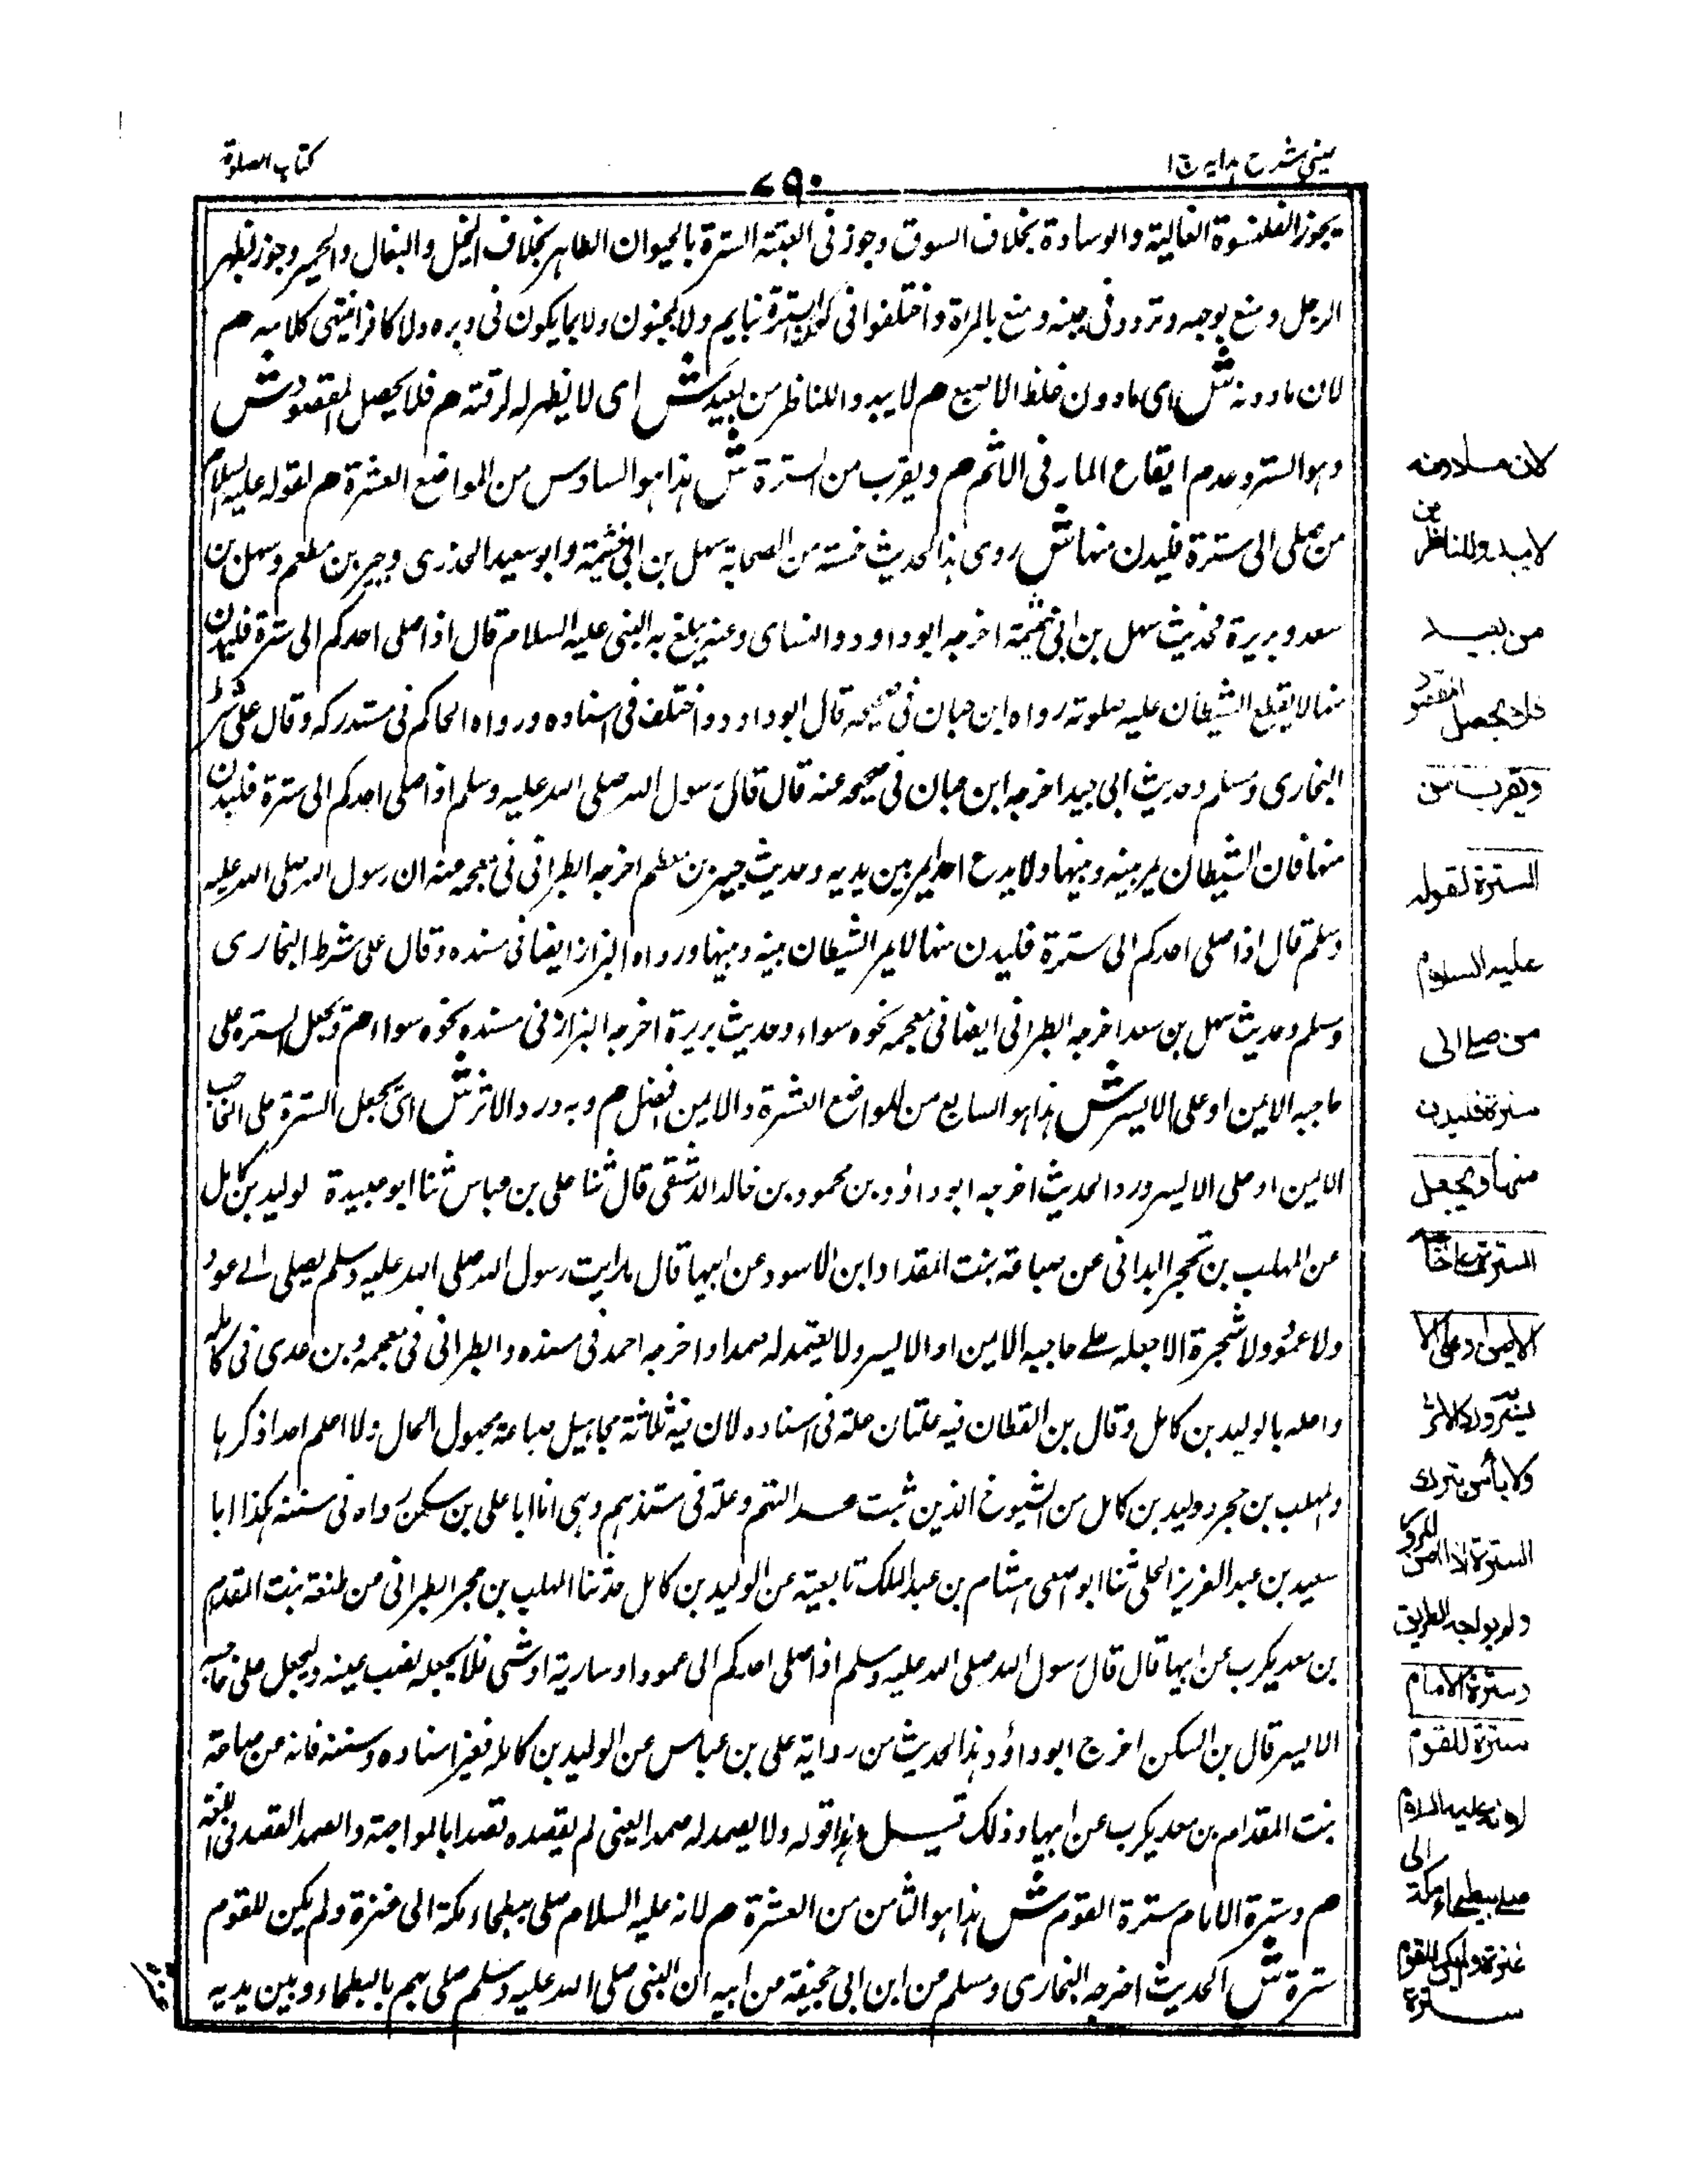 عینی شرح ہدایہ ج ۱
۷۹۰
کتاب الصلوۃ
یجوز القلنسوة العالیة والوسادة بخلاف السوق وجوز فی العتبة السترة بالحیوان الطاہر بخلاف الخیل والبغال والحمیر وجوز بظہر
الرجل ومنع بوجہہ وتردد فی جنبہ ومنع بالمراة واختلفوا فی السترة بنایم ولا بمجنون ولا بمایکون فی دبره ولا کافر انتہی کلامہ م
لان ما دونہ ش ای ما دون غلظ الاصبع م لا یبدو للناظر من بعید ش ای لا یظہر لہ لرقتہ م فلا یحصل المقصود ش
وہو الستر وعدم ایقاع المار فی الاثم م ویقرب من السترة ش ہذا ہو السادس من المواضع العشرة م لقولہ علیہ السلام
من صلی الی سترة فلیدن منہا ش روی ہذا الحدیث خمسة من الصحابة سہل بن ابی خثیمة وابو سعید الخدری وجبیر بن مطعم وسہل بن
سعد وبریرة فحدیث سہل بن ابی خثیمة اخرجہ ابو داود والنسای وعنہ یبلغ بہ النبی علیہ السلام قال اذا صلی احدکم الی سترة فلیدن
منہا لا یقطع الشیطان علیہ صلوتہ رواه ابن حبان فی صحیحہ قال ابو داود واختلف فی اسناده ورواه الحاکم فی مستدرکہ وقال علی شرط
البخاری ومسلم وحدیث ابی اخرجہ ابن حبان فی صحیحہ عنہ قال قال رسول اللہ صلی اللہ علیہ وسلم اذا صلی احدکم الی سترة فلیدن
منہا فان الشیطان یمر بینہ وبینہا ولا یدع احدا یمر بین یدیہ وحدیث جبیر بن مطعم اخرجہ الطبرانی فی معجمہ عنہ ان رسول اللہ صلی اللہ علیہ
وسلم قال اذا صلی احدکم الی سترة فلیدن منہا لا یمر الشیطان بینہ وبینہا ورواه البزار ایضا فی مسنده وقال علی شرط البخاری
وسلم وحدیث سہل بن سعد اخرجہ الطبرانی ایضا فی معجمہ نحوه سواء وحدیث بریرة اخرجہ البزار فی مسنده نحوه سواء م ویجعل السترة علی
حاجبہ الایمن او علی الایسر ش ہذا ہو السابع من المواضع العشرة والایمن افضل م وبہ ورد الاثر ش ای یجعل السترة علی الحاجب
الایمن او علی الایسر ورد الحدیث اخرجہ ابو داؤد بن محمود بن خالد الدمشقی قال ثنا علی بن عباس ثنا ابو عبیدة لولید بن کامل
عن المہلب بن حجر البدانی عن ضباعة بنت المقداد ابن الاسود عن ابیہا قال ما رایت رسول اللہ صلی اللہ علیہ وسلم یصلی الے عود
ولا عمود ولا شجرة الا جعلہ علے حاجبہ الایمن او الایسر ولا یعتمد لہ صمدا واخرجہ احمد فی مسنده والطبرانی فی معجمہ وبن عدی فی کاملہ
واعلہ بالولید بن کامل وقال بن القطان فیہ علتان علة فی اسناده لان فیہ ثلاثة مجاہیل ضباعة مجہول الحال ولا اعلم احدا ذکرہا
والمہلب بن حجر وولید بن کامل من الشیوخ الذین وہی انا ابا علی بن سکن رواه فی سننہ ہکذا ابا
سعید بن عبد العزیز الحلی ثنا ہشام بن عبد الملک عن الولید بن کامل حدثنا المہلب بن حجر الطبرانی عن بنت المقدم
بن معدیکرب عن ابیہا قال قال رسول اللہ صلی اللہ علیہ وسلم اذا صلی احدکم الی عمود او ساریة او شی فلا یجعلہ نصب عینہ ولیجعل علی حاجبہ
الایسر قال بن السکن اخرج ابو داؤد ہذا الحدیث من روایة علی بن عباس عن الولید بن کامل فغیر اسناده ومتنہ فانہ عن ضباعة
بنت المقدام بن معدیکرب عن ابیہا وذلک قولہ ولا یصمد لہ صمدا یعنی لم یقصده قصدا بالمواجہة والصمد القصد فی اللغة
م وسترة الامام سترة القوم ش ہذا ہو الثامن من العشرة م لانہ علیہ السلام صلی ببطحاء مکة الی عنزة ولم یکن للقوم
سترة ش الحدیث اخرجہ البخاری ومسلم من ابن ابی جحیفة من ابیہ ان النبی صلی اللہ علیہ وسلم صلی بہم بالبطحاء وبین یدیہ
لان ما دونہ
لا یبدو للناظر من
من بعید
فلا یحصل المقصود
ویقرب من
السترة لقولہ
علیہ السلام
من صلے الی
سترة فلیدن
منہا ویجعل
السترة علی حاجبہ
الایمن او علی الا
یسر وبہ ورد الاثر
ولا بأس بترک
السترة اذا امن المرور
ولم یواجہ الطریق
وسترة الامام
سترة للقوم
لانہ علیہ السلام
صلے ببطحاء مکة الی
عنزة ولم یکن للقوم
سترة